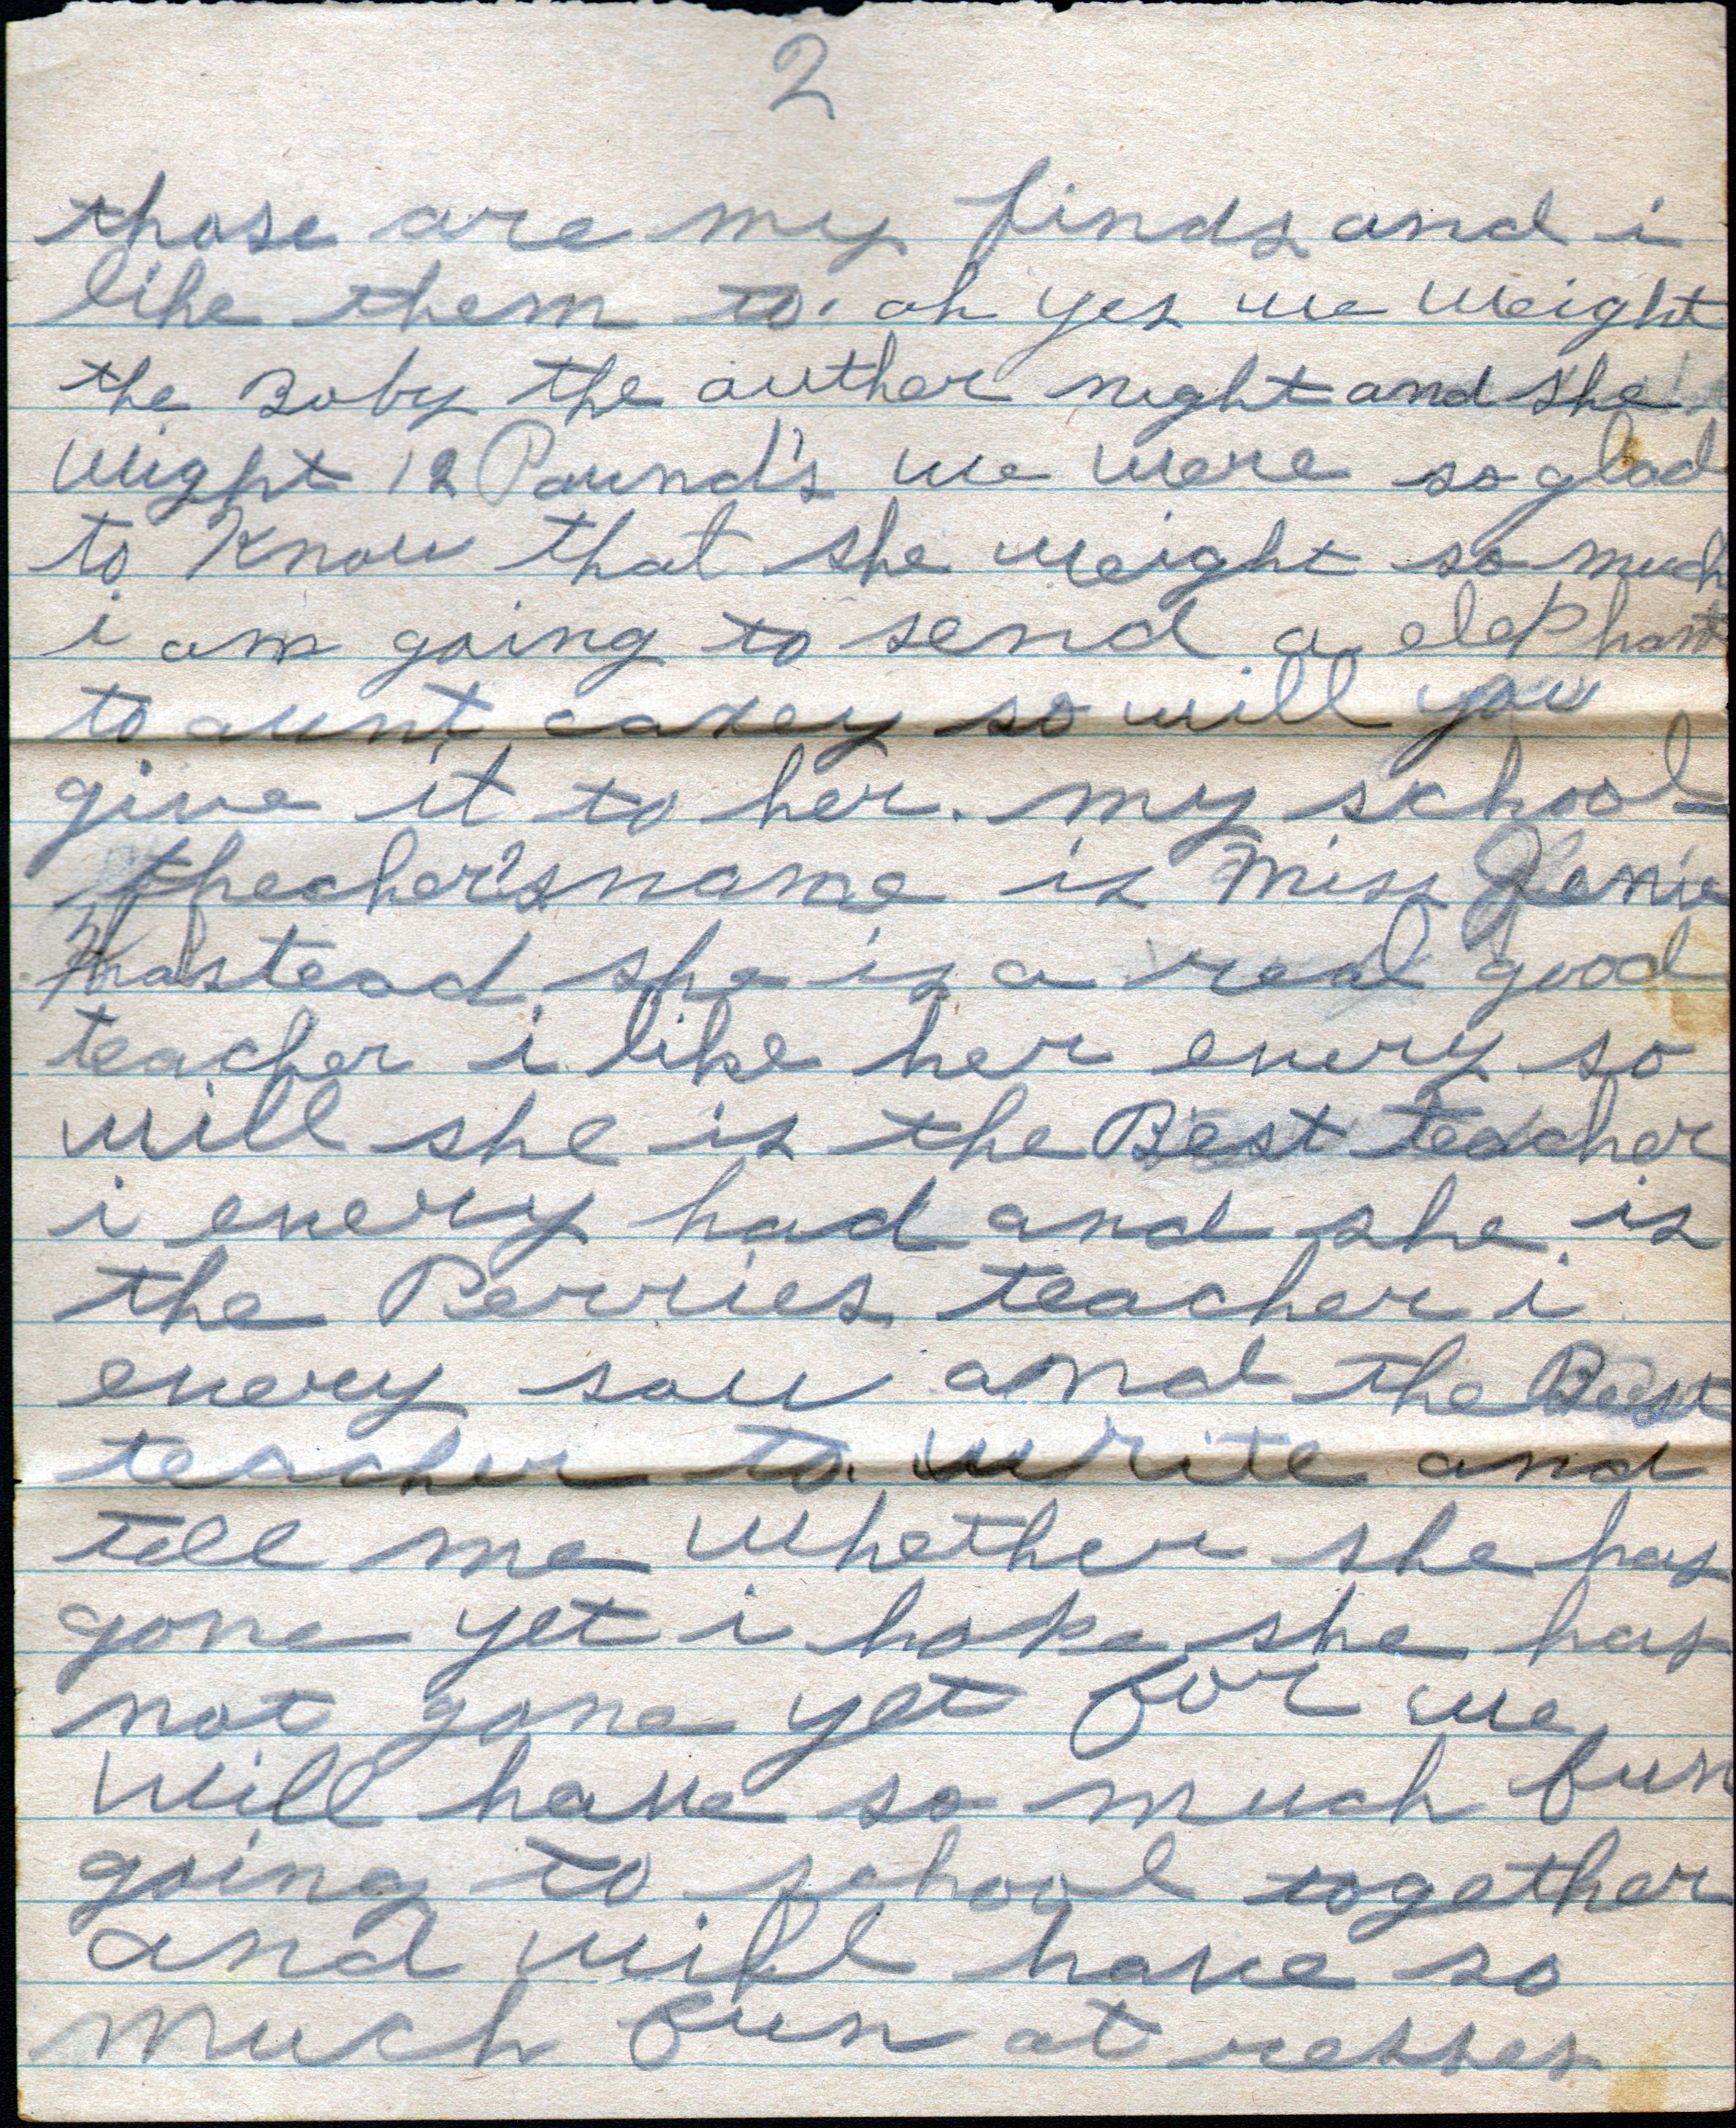 2
those are my finds and i
like them to. oh yes we weight
the Boby the auther night and she
wight 12 Pound's we were so glad
to Know that she weight so much
i am going to send a elephant
to aunt caxey so will you
give it to her. my school
theacher's name is Miss
Mastead she is a real good
teacher i like her every so
will she is the Best teacher
i enery had and she is
the Perries teacher i
enery sow and the Best
teacher to write and
tell me whether she has
gone yet i hope she has
not gone yet for we
will have so much fun
going to school together
and will have so
much fun at resses